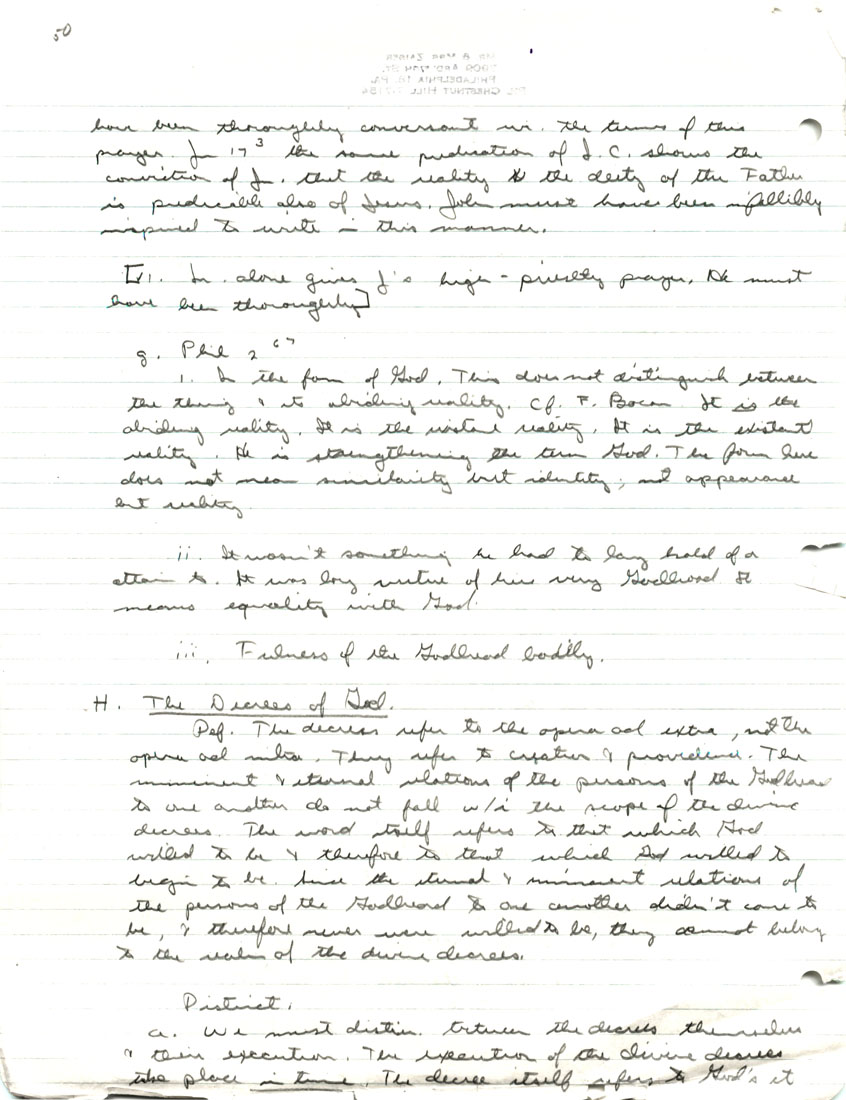 50
have been thoroughly conversant w. the terms of this
prayer. Jn 17³ the same predication of J. C. shows the
conviction of Jn. that the reality & the deity of the Father
is predicable also of Jesus. John must have been infallibly
inspired to write in this manner.
[1. Jn. alone gives J's high-priestly prayer. He must
have been thoroughly]
g. Phil 2 ⁶ ⁷
i. In the form of God. This does not distinguish between
the thing & its abiding reality. Cf. F. Bacon. It is the
abiding reality. It is the reality. It is the existent
reality. He is strengthening the term God. The form here
does not mean similarity but identity; not appearance
but reality.
ii. It wasn't something he had to lay hold of or
attain to. It was by virtue of his very Godhood. It
means equality with God.
iii. Fulness of the Godhead bodily.
H. The Decrees of God.
Def. The decrees refer to the opera ad extra, not the
opera ad intra. They refer to creation & providence. The
imminent & eternal relations of the persons of the Godhead
to one another do not fall w/i the scope of the divine
decrees. The word itself refers to that which God
willed to be & therefore to that which God willed to
begin to be. Since the eternal & imminent relations of
the persons of the Godhead to one another didn't come to
be, & therefore never were willed to be, they cannot belong
to the realm of the divine decrees.
Distinct.
a. We must distin. between the decrees themselves
& their execution. The execution of the divine decrees
take place in time. The decree itself refers to God's